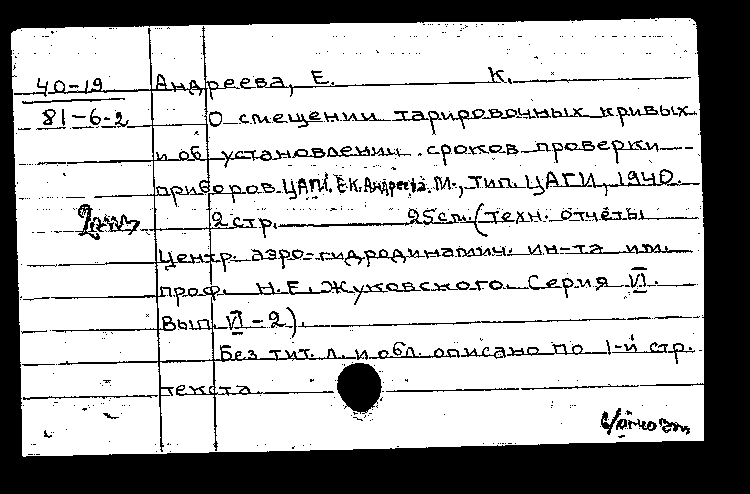 40-19 Андреева, Е. К.
81-6-2 О смещении тарировочных кривых
и об установлении сроков проверки
приборов. ЦАГИ. Е.К. Андреева. М., Тип. ЦАГИ, 1940.
2 стр. 25 см. (Техн. отчёты
Центр. аэро-гидродинамич. ин-та им.
проф. Н. Е. Жуковского. Серия VI.
Вып. VI-2).
Без тит. л. и обл. описано по 1-й стр.
текста